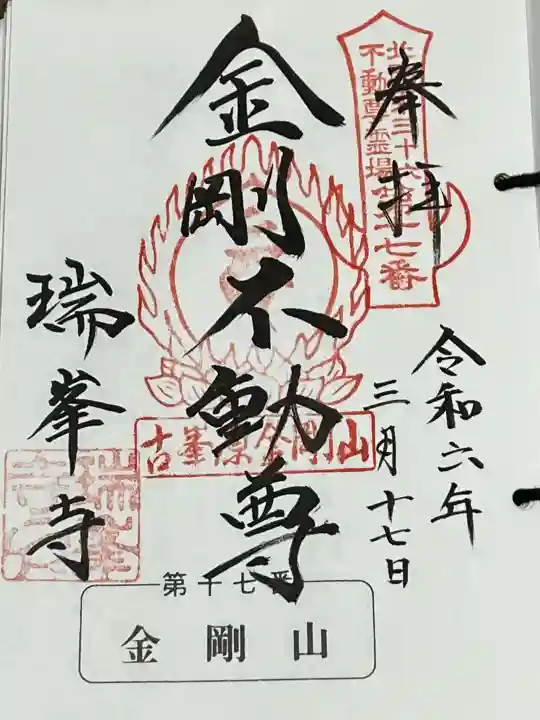 奉拝
令和六年
三月十七日
金剛不動尊
瑞峯寺
不動尊霊場第十七番
古峯原金剛山
第十七番
金剛山